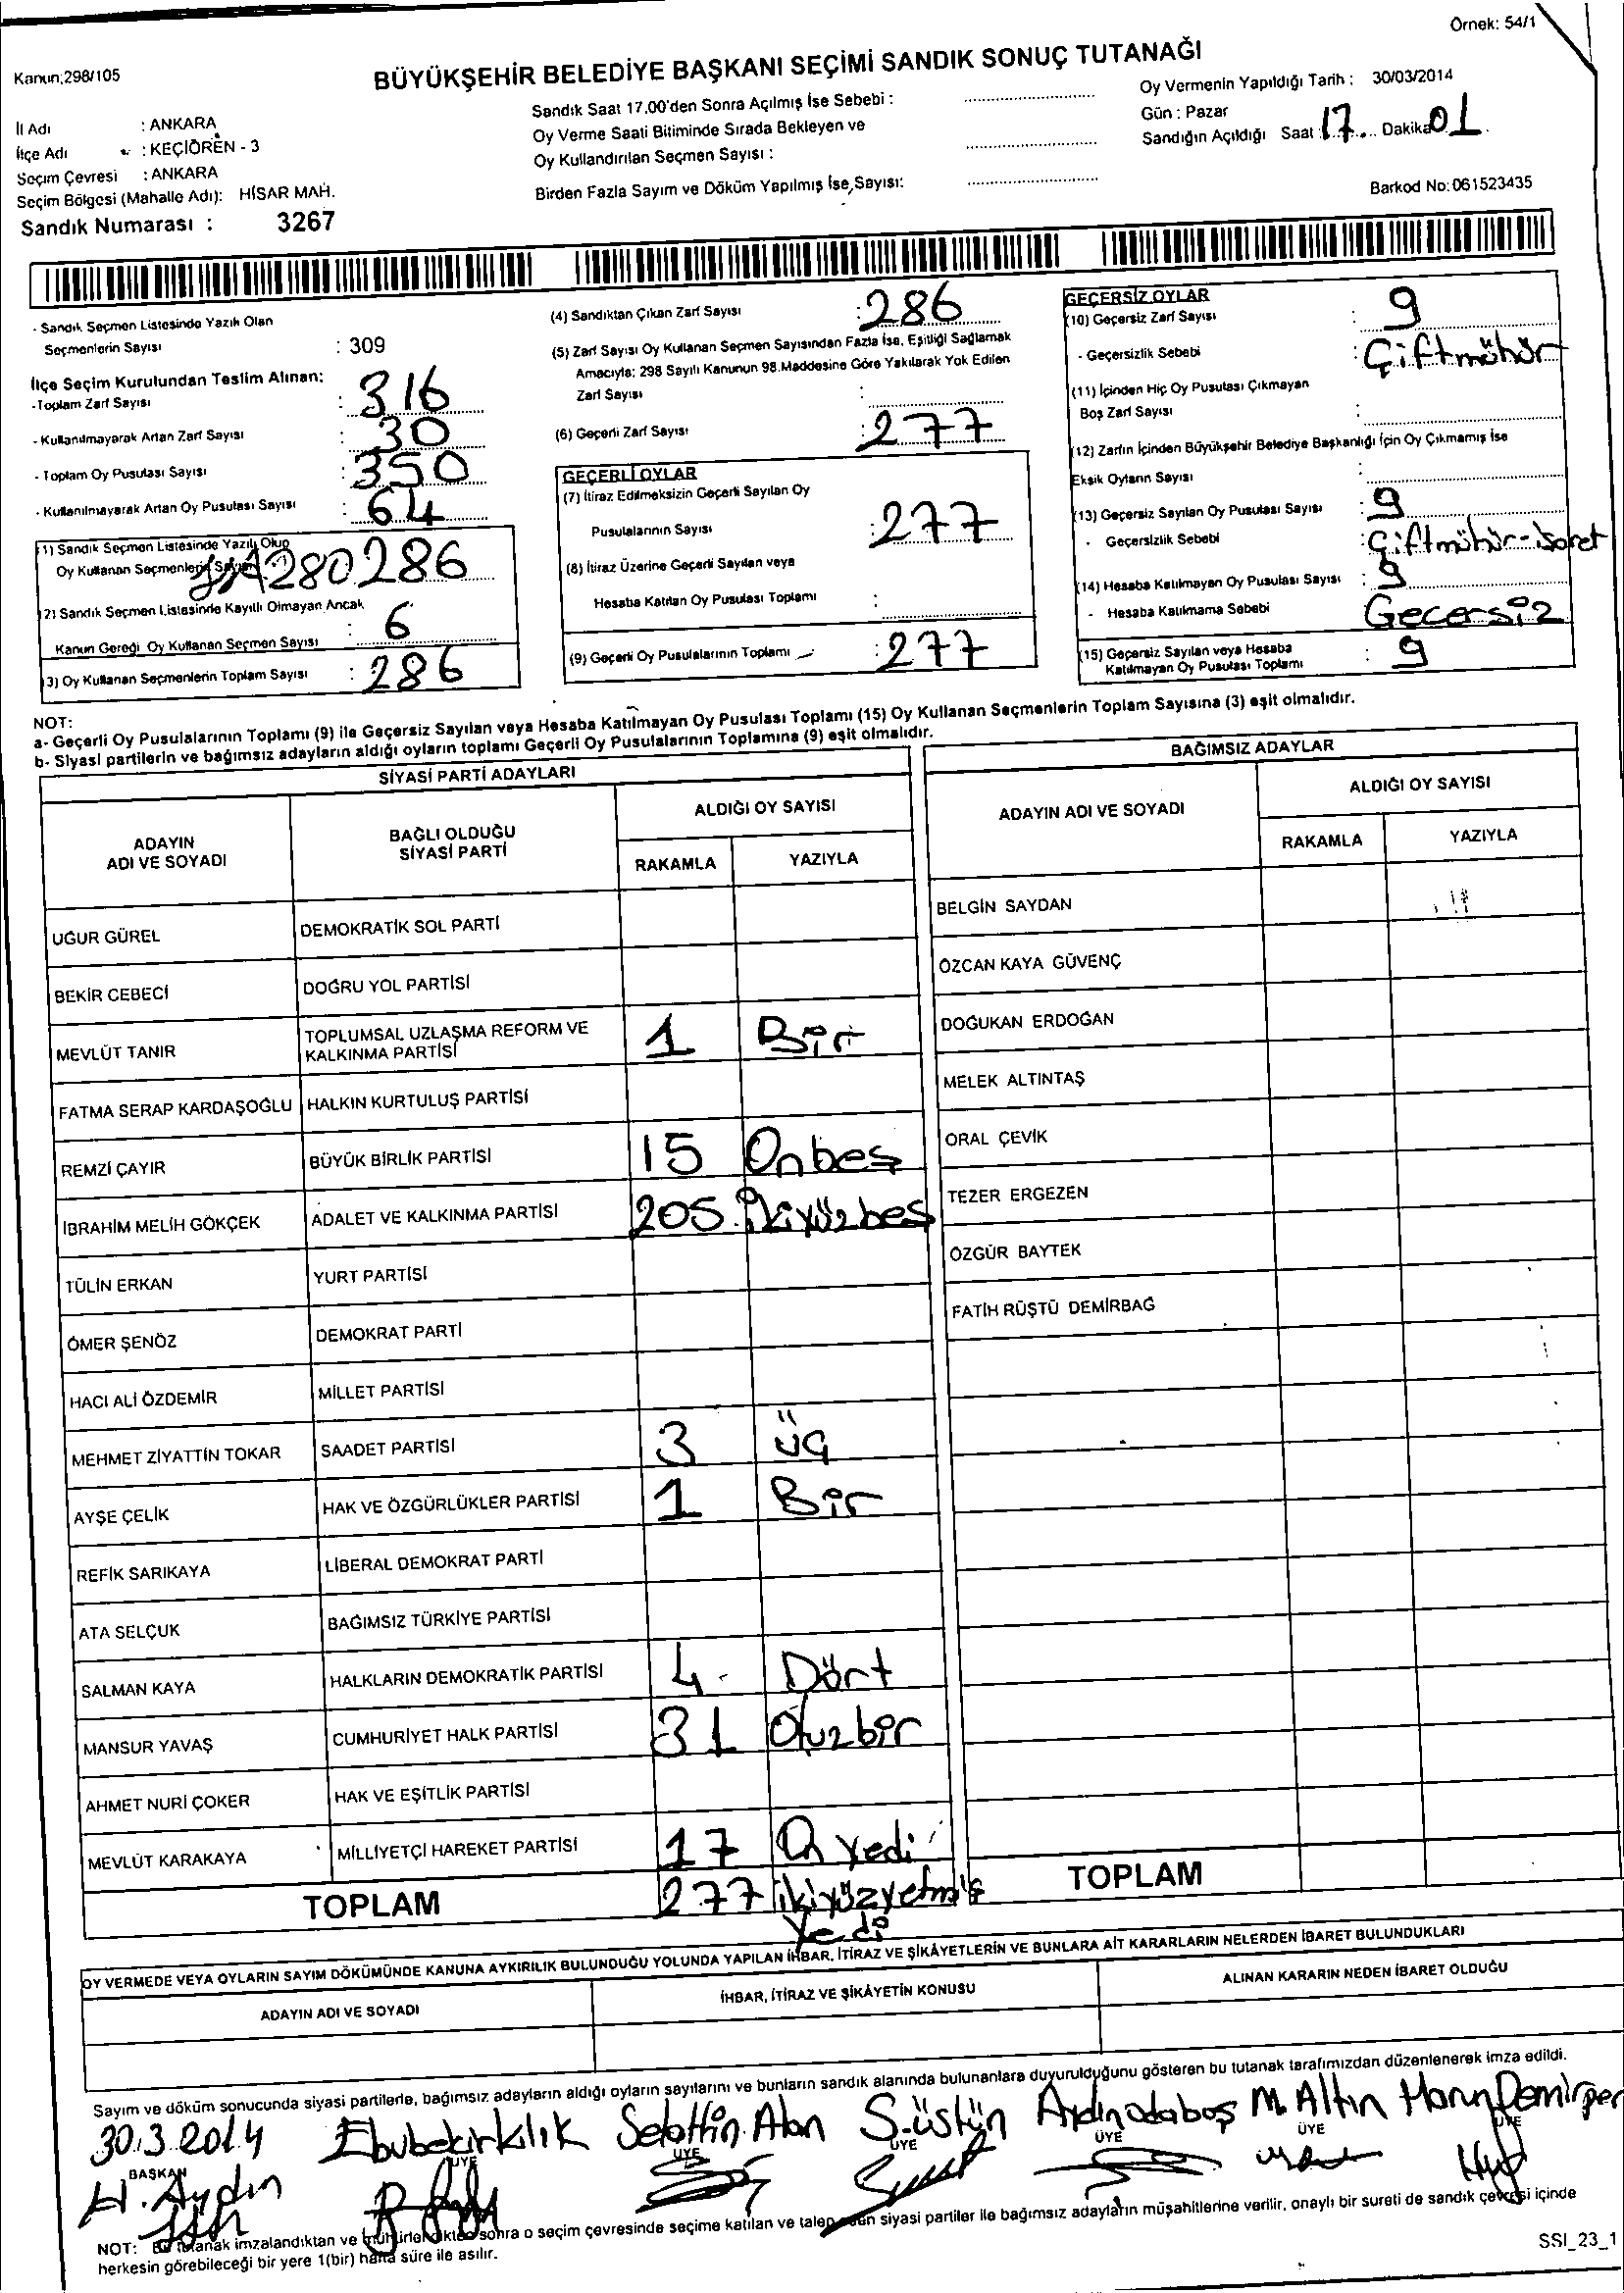 Örnek: 54/1
Kanun;298/105
BÜYÜKŞEHİR BELEDİYE BAŞKANI SEÇİMİ SANDIK SONUÇ TUTANAĞI
İl Adı : ANKARA
İlçe Adı : KEÇİÖREN - 3
Seçim Çevresi : ANKARA
Seçim Bölgesi (Mahalle Adı): HİSAR MAH.
Sandık Numarası : 3267
Sandık Saat 17.00'den Sonra Açılmış İse Sebebi :
Oy Verme Saati Bitiminde Sırada Bekleyen ve
Oy Kullandırılan Seçmen Sayısı :
Birden Fazla Sayım ve Döküm Yapılmış İse,Sayısı:
Oy Vermenin Yapıldığı Tarih : 30/03/2014
Gün : Pazar
Sandığın Açıldığı Saat : 17 Dakika 01
Barkod No:061523435
- Sandık Seçmen Listesinde Yazılı Olan
Seçmenlerin Sayısı : 309
İlçe Seçim Kurulundan Teslim Alınan:
-Toplam Zarf Sayısı : 316
- Kullanılmayarak Artan Zarf Sayısı : 30
- Toplam Oy Pusulası Sayısı : 350
- Kullanılmayarak Artan Oy Pusulası Sayısı : 64
(1) Sandık Seçmen Listesinde Yazılı Olup
Oy Kullanan Seçmenlerin Sayısı 280 286
(2) Sandık Seçmen Listesinde Kayıtlı Olmayan Ancak
Kanun Gereği Oy Kullanan Seçmen Sayısı : 6
(3) Oy Kullanan Seçmenlerin Toplam Sayısı : 286
(4) Sandıktan Çıkan Zarf Sayısı : 286
(5) Zarf Sayısı Oy Kullanan Seçmen Sayısından Fazla İse, Eşitliği Sağlamak
Amacıyla; 298 Sayılı Kanunun 98.Maddesine Göre Yakılarak Yok Edilen
Zarf Sayısı :
(6) Geçerli Zarf Sayısı : 277
GEÇERLİ OYLAR
(7) İtiraz Edilmeksizin Geçerli Sayılan Oy
Pusulalarının Sayısı : 277
(8) İtiraz Üzerine Geçerli Sayılan veya
Hesaba Katılan Oy Pusulası Toplamı :
(9) Geçerli Oy Pusulalarının Toplamı : 277
GEÇERSİZ OYLAR
(10) Geçersiz Zarf Sayısı : 9
- Geçersizlik Sebebi : Çiftmühür
(11) İçinden Hiç Oy Pusulası Çıkmayan
Boş Zarf Sayısı :
(12) Zarfın İçinden Büyükşehir Belediye Başkanlığı İçin Oy Çıkmamış İse
Eksik Oyların Sayısı :
(13) Geçersiz Sayılan Oy Pusulası Sayısı : 9
- Geçersizlik Sebebi : Çiftmühür-işaret
(14) Hesaba Katılmayan Oy Pusulası Sayısı : 9
- Hesaba Katılmama Sebebi Geçersiz
(15) Geçersiz Sayılan veya Hesaba
Katılmayan Oy Pusulası Toplamı : 9
NOT:
a- Geçerli Oy Pusulalarının Toplamı (9) ile Geçersiz Sayılan veya Hesaba Katılmayan Oy Pusulası Toplamı (15) Oy Kullanan Seçmenlerin Toplam Sayısına (3) eşit olmalıdır.
b- Siyasi partilerin ve bağımsız adayların aldığı oyların toplamı Geçerli Oy Pusulalarının Toplamına (9) eşit olmalıdır.
SİYASİ PARTİ ADAYLARI
ADAYIN ADI VE SOYADI
BAĞLI OLDUĞU SİYASİ PARTİ
ALDIĞI OY SAYISI
RAKAMLA YAZIYLA
UĞUR GÜREL DEMOKRATİK SOL PARTİ
BEKİR CEBECİ DOĞRU YOL PARTİSİ
MEVLÜT TANIR TOPLUMSAL UZLAŞMA REFORM VE KALKINMA PARTİSİ 1 Bir
FATMA SERAP KARDAŞOĞLU HALKIN KURTULUŞ PARTİSİ
REMZİ ÇAYIR BÜYÜK BİRLİK PARTİSİ 15 Onbeş
İBRAHİM MELİH GÖKÇEK ADALET VE KALKINMA PARTİSİ 205 İkiyüzbeş
TÜLİN ERKAN YURT PARTİSİ
ÖMER ŞENÖZ DEMOKRAT PARTİ
HACI ALİ ÖZDEMİR MİLLET PARTİSİ
MEHMET ZİYATTİN TOKAR SAADET PARTİSİ 3 üç
AYŞE ÇELİK HAK VE ÖZGÜRLÜKLER PARTİSİ 1 Bir
REFİK SARIKAYA LİBERAL DEMOKRAT PARTİ
ATA SELÇUK BAĞIMSIZ TÜRKİYE PARTİSİ
SALMAN KAYA HALKLARIN DEMOKRATİK PARTİSİ 4 Dört
MANSUR YAVAŞ CUMHURİYET HALK PARTİSİ 31 Otuzbir
AHMET NURİ ÇOKER HAK VE EŞİTLİK PARTİSİ
MEVLÜT KARAKAYA MİLLİYETÇİ HAREKET PARTİSİ 17 On yedi
TOPLAM 277 ikiyüzyetmiş yedi
BAĞIMSIZ ADAYLAR
ADAYIN ADI VE SOYADI
ALDIĞI OY SAYISI
RAKAMLA YAZIYLA
BELGİN SAYDAN
ÖZCAN KAYA GÜVENÇ
DOĞUKAN ERDOĞAN
MELEK ALTINTAŞ
ORAL ÇEVİK
TEZER ERGEZEN
ÖZGÜR BAYTEK
FATİH RÜŞTÜ DEMİRBAĞ
TOPLAM
OY VERMEDE VEYA OYLARIN SAYIM DÖKÜMÜNDE KANUNA AYKIRILIK BULUNDUĞU YOLUNDA YAPILAN İHBAR, İTİRAZ VE ŞİKÂYETLERİN VE BUNLARA AİT KARARLARIN NELERDEN İBARET BULUNDUKLARI
ADAYIN ADI VE SOYADI
İHBAR, İTİRAZ VE ŞİKÂYETİN KONUSU
ALINAN KARARIN NEDEN İBARET OLDUĞU
Sayım ve döküm sonucunda siyasi partilerle, bağımsız adayların aldığı oyların sayılarını ve bunların sandık alanında bulunanlara duyurulduğunu gösteren bu tutanak tarafımızdan düzenlenerek imza edildi.
30.3.2014 Ebubekir kılık Selattin Alan S.üstün Aydın odabaş M. Altın Harun Demirper
BAŞKAN ÜYE ÜYE ÜYE ÜYE ÜYE ÜYE
H. Aydın
NOT: Bu tutanak imzalandıktan ve mühürlendikten sonra o seçim çevresinde seçime katılan ve talep eden siyasi partiler ile bağımsız adayların müşahitlerine verilir, onaylı bir sureti de sandık çevresi içinde
herkesin görebileceği bir yere 1(bir) hafta süre ile asılır.
SSI_23_1